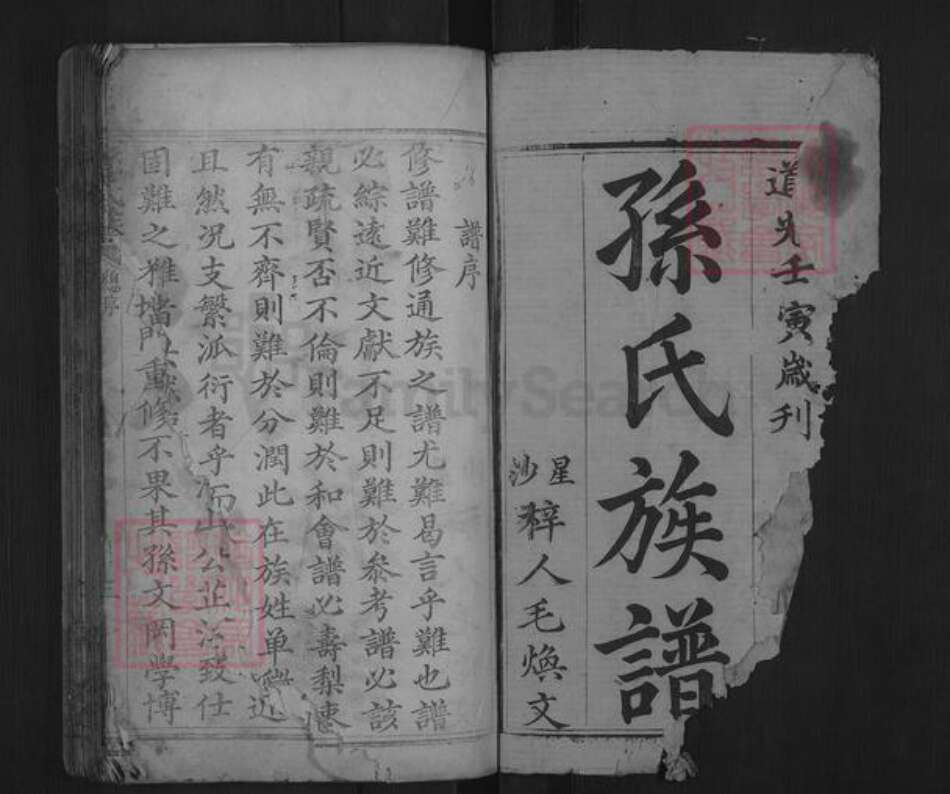 道光壬寅歲刊
孫氏族譜
星沙
梓人毛煥文
譜序
修譜難修通族之譜尤難曷言乎難也譜
必綜遠近文獻不足則難於叅考譜必該
親疏賢否不倫則難於和會譜必壽梨棗
有無不齊則難於分潤此在族姓单 近
且然况支繁派衍者乎 公芷 致仕
固難之 墻 重修不果其孫文岡學博
FamilySearch